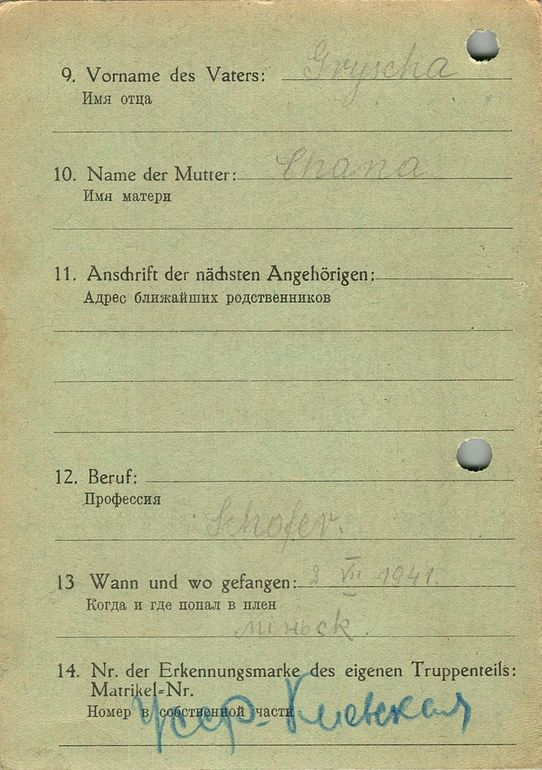 9. Vorname des Vaters: Gryscha
Имя отца
10. Name der Mutter: Chana
Имя матери
11. Anschrift der nächsten Angehörigen:
Адрес ближайших родственников
12. Beruf:
Профессия
Schofer.
13 Wann und wo gefangen: 2 VII 1941.
Когда и где попал в плен
міньск.
14. Nr. der Erkennungsmarke des eigenen Truppenteils:
Matrikel-Nr.
Номер в собственной части
Усср - Киевская